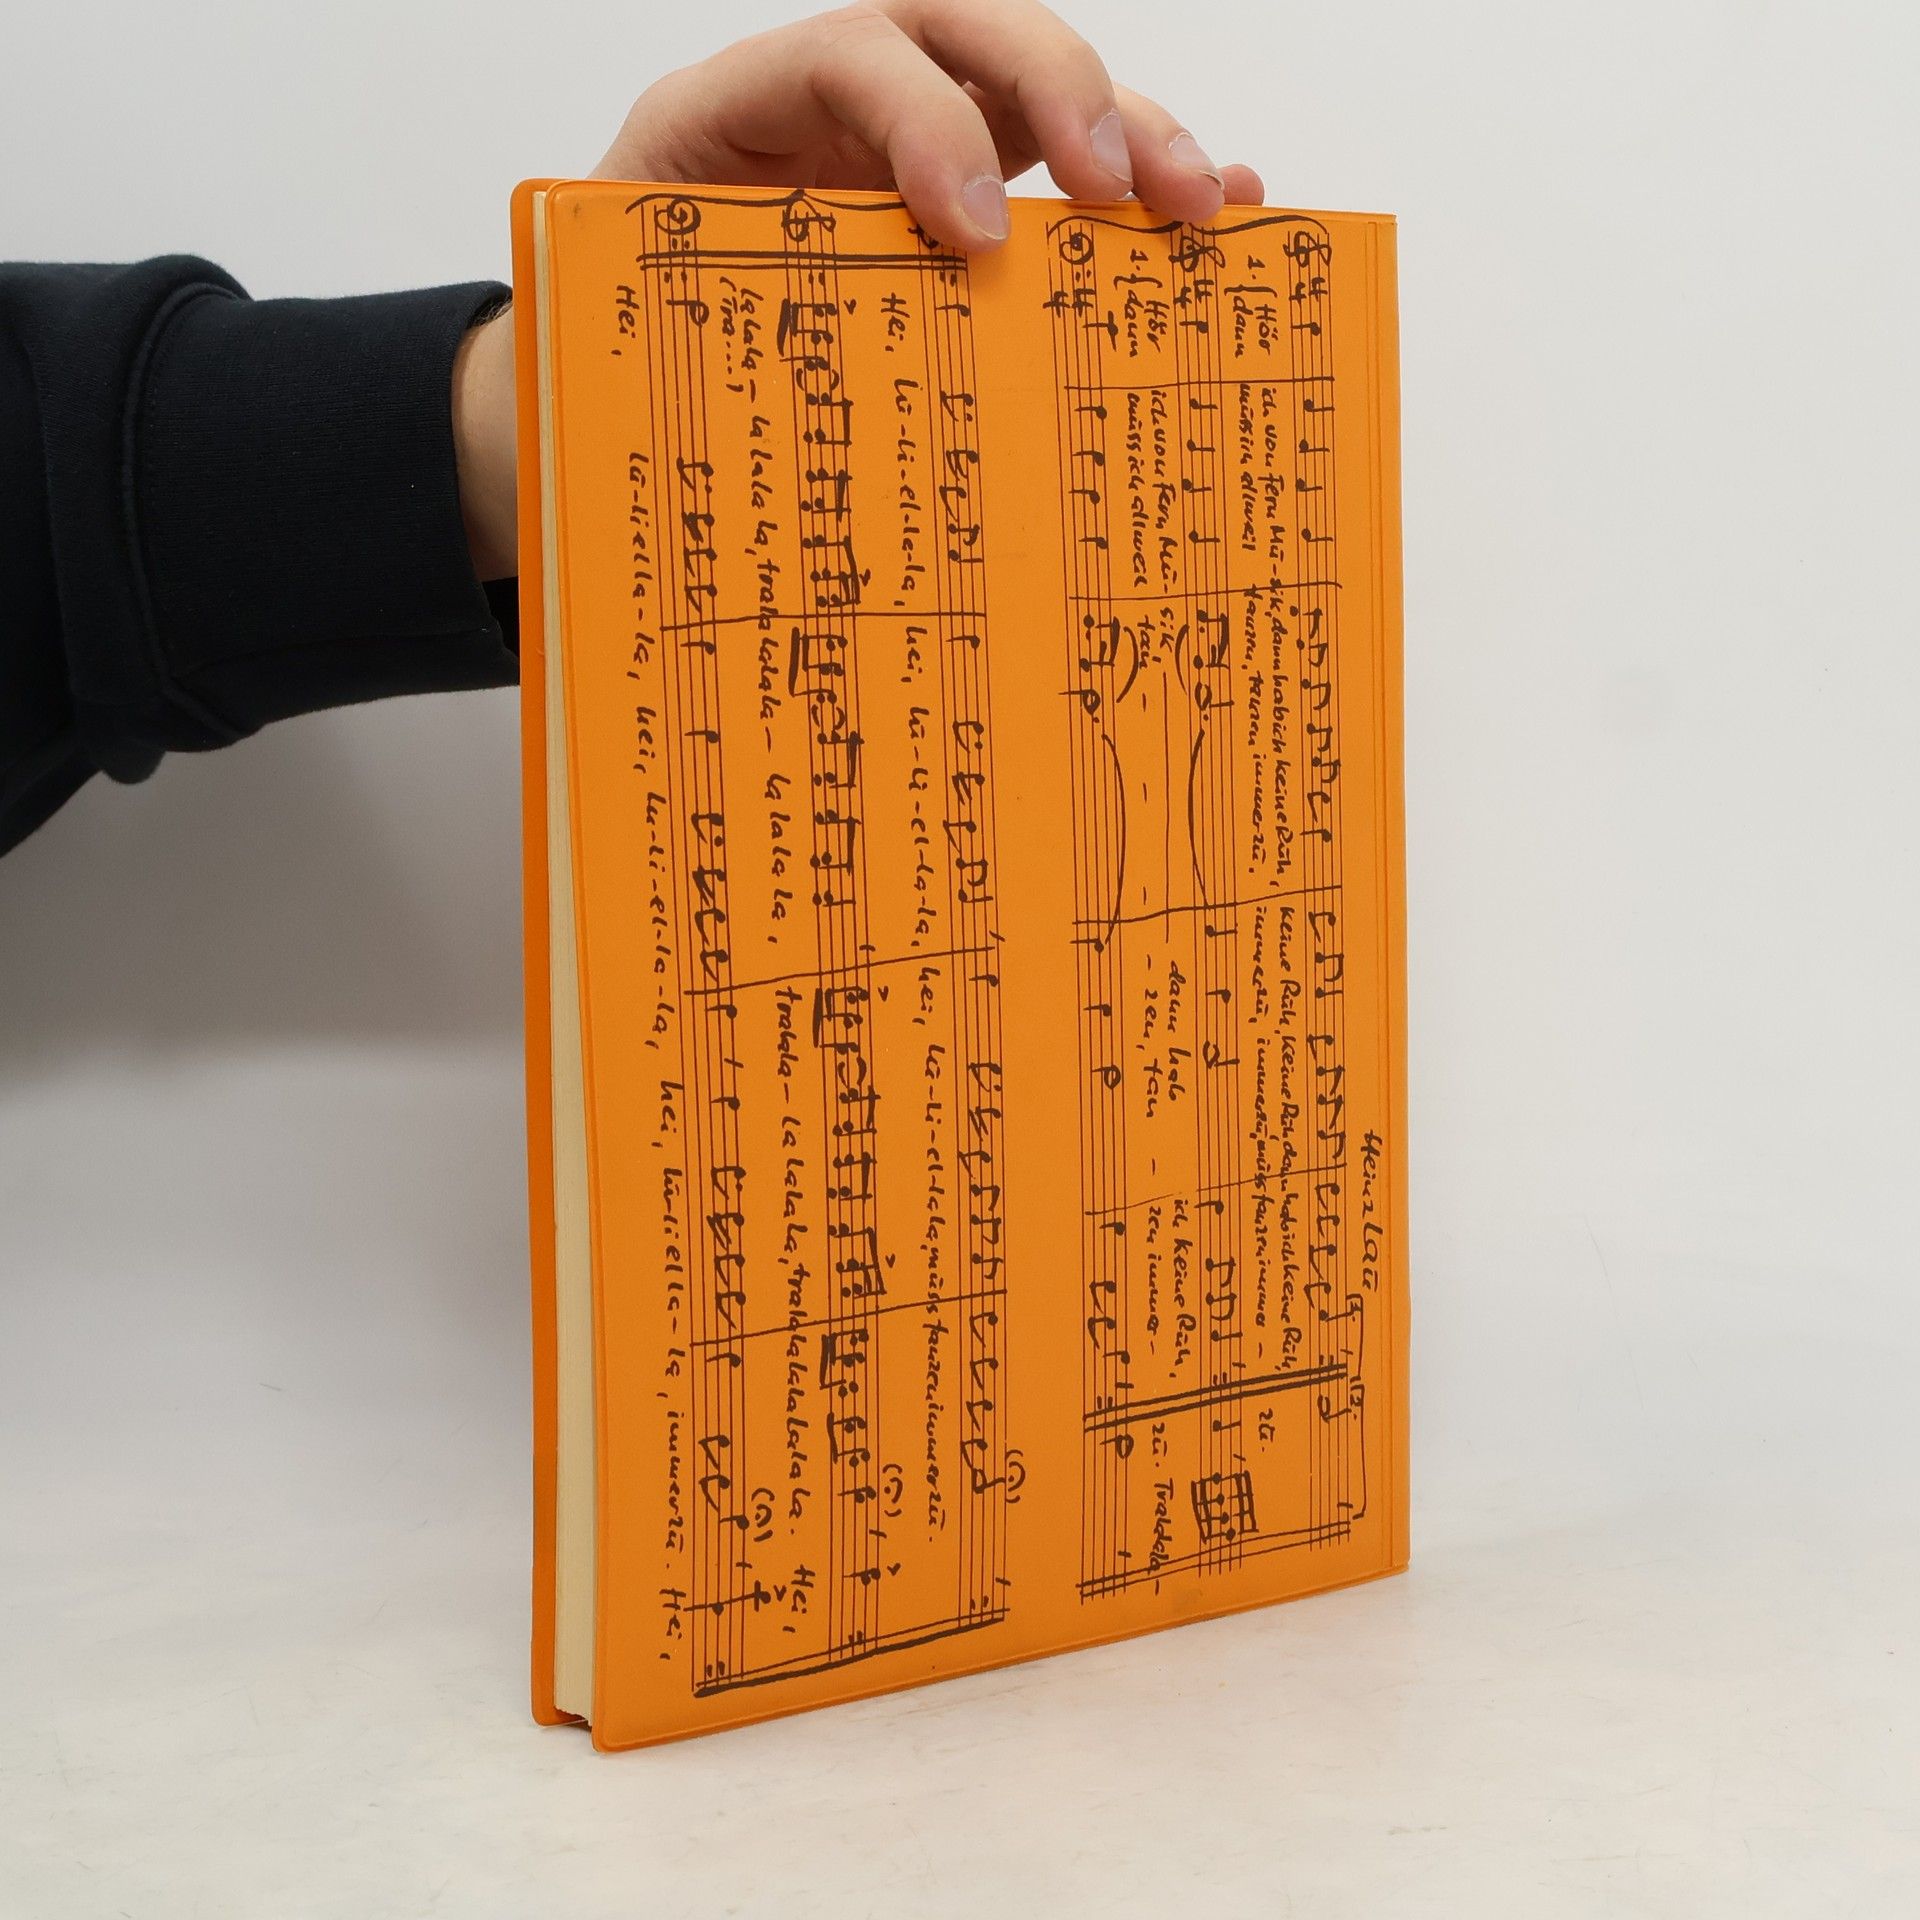 Heinz Lau
1. 2.
1. { Hör ich von Fern Mu-sik, dann hab ich keine Ruh, keine Ruh, keine Ruh, dann hab ich keine Ruh,
dann müss ich allweil tanzen, tanzen immerzu, immerzu, immerzu, müss tanzen immer - zu.
1. { Hör ich von Fern Mu-sik, dann hab ich keine Ruh,
dann müss ich allweil tan - - - - zen, tan - zen immer - zu. Tralala -
Hei, lü-li-el-la-la, hei, lü-li-el-la-la, hei, lü-li-el-la-la, müss tanzen immerzu.
lalala - la lala la, tralalalala - la la la la, tralala - la lalala, tralalalalalalala la. Hei,
(Tra....)
Hei, lü-liella-la, hei, lu-li-el-la-la, hei, lü-liella-la, immerzu. Hei,